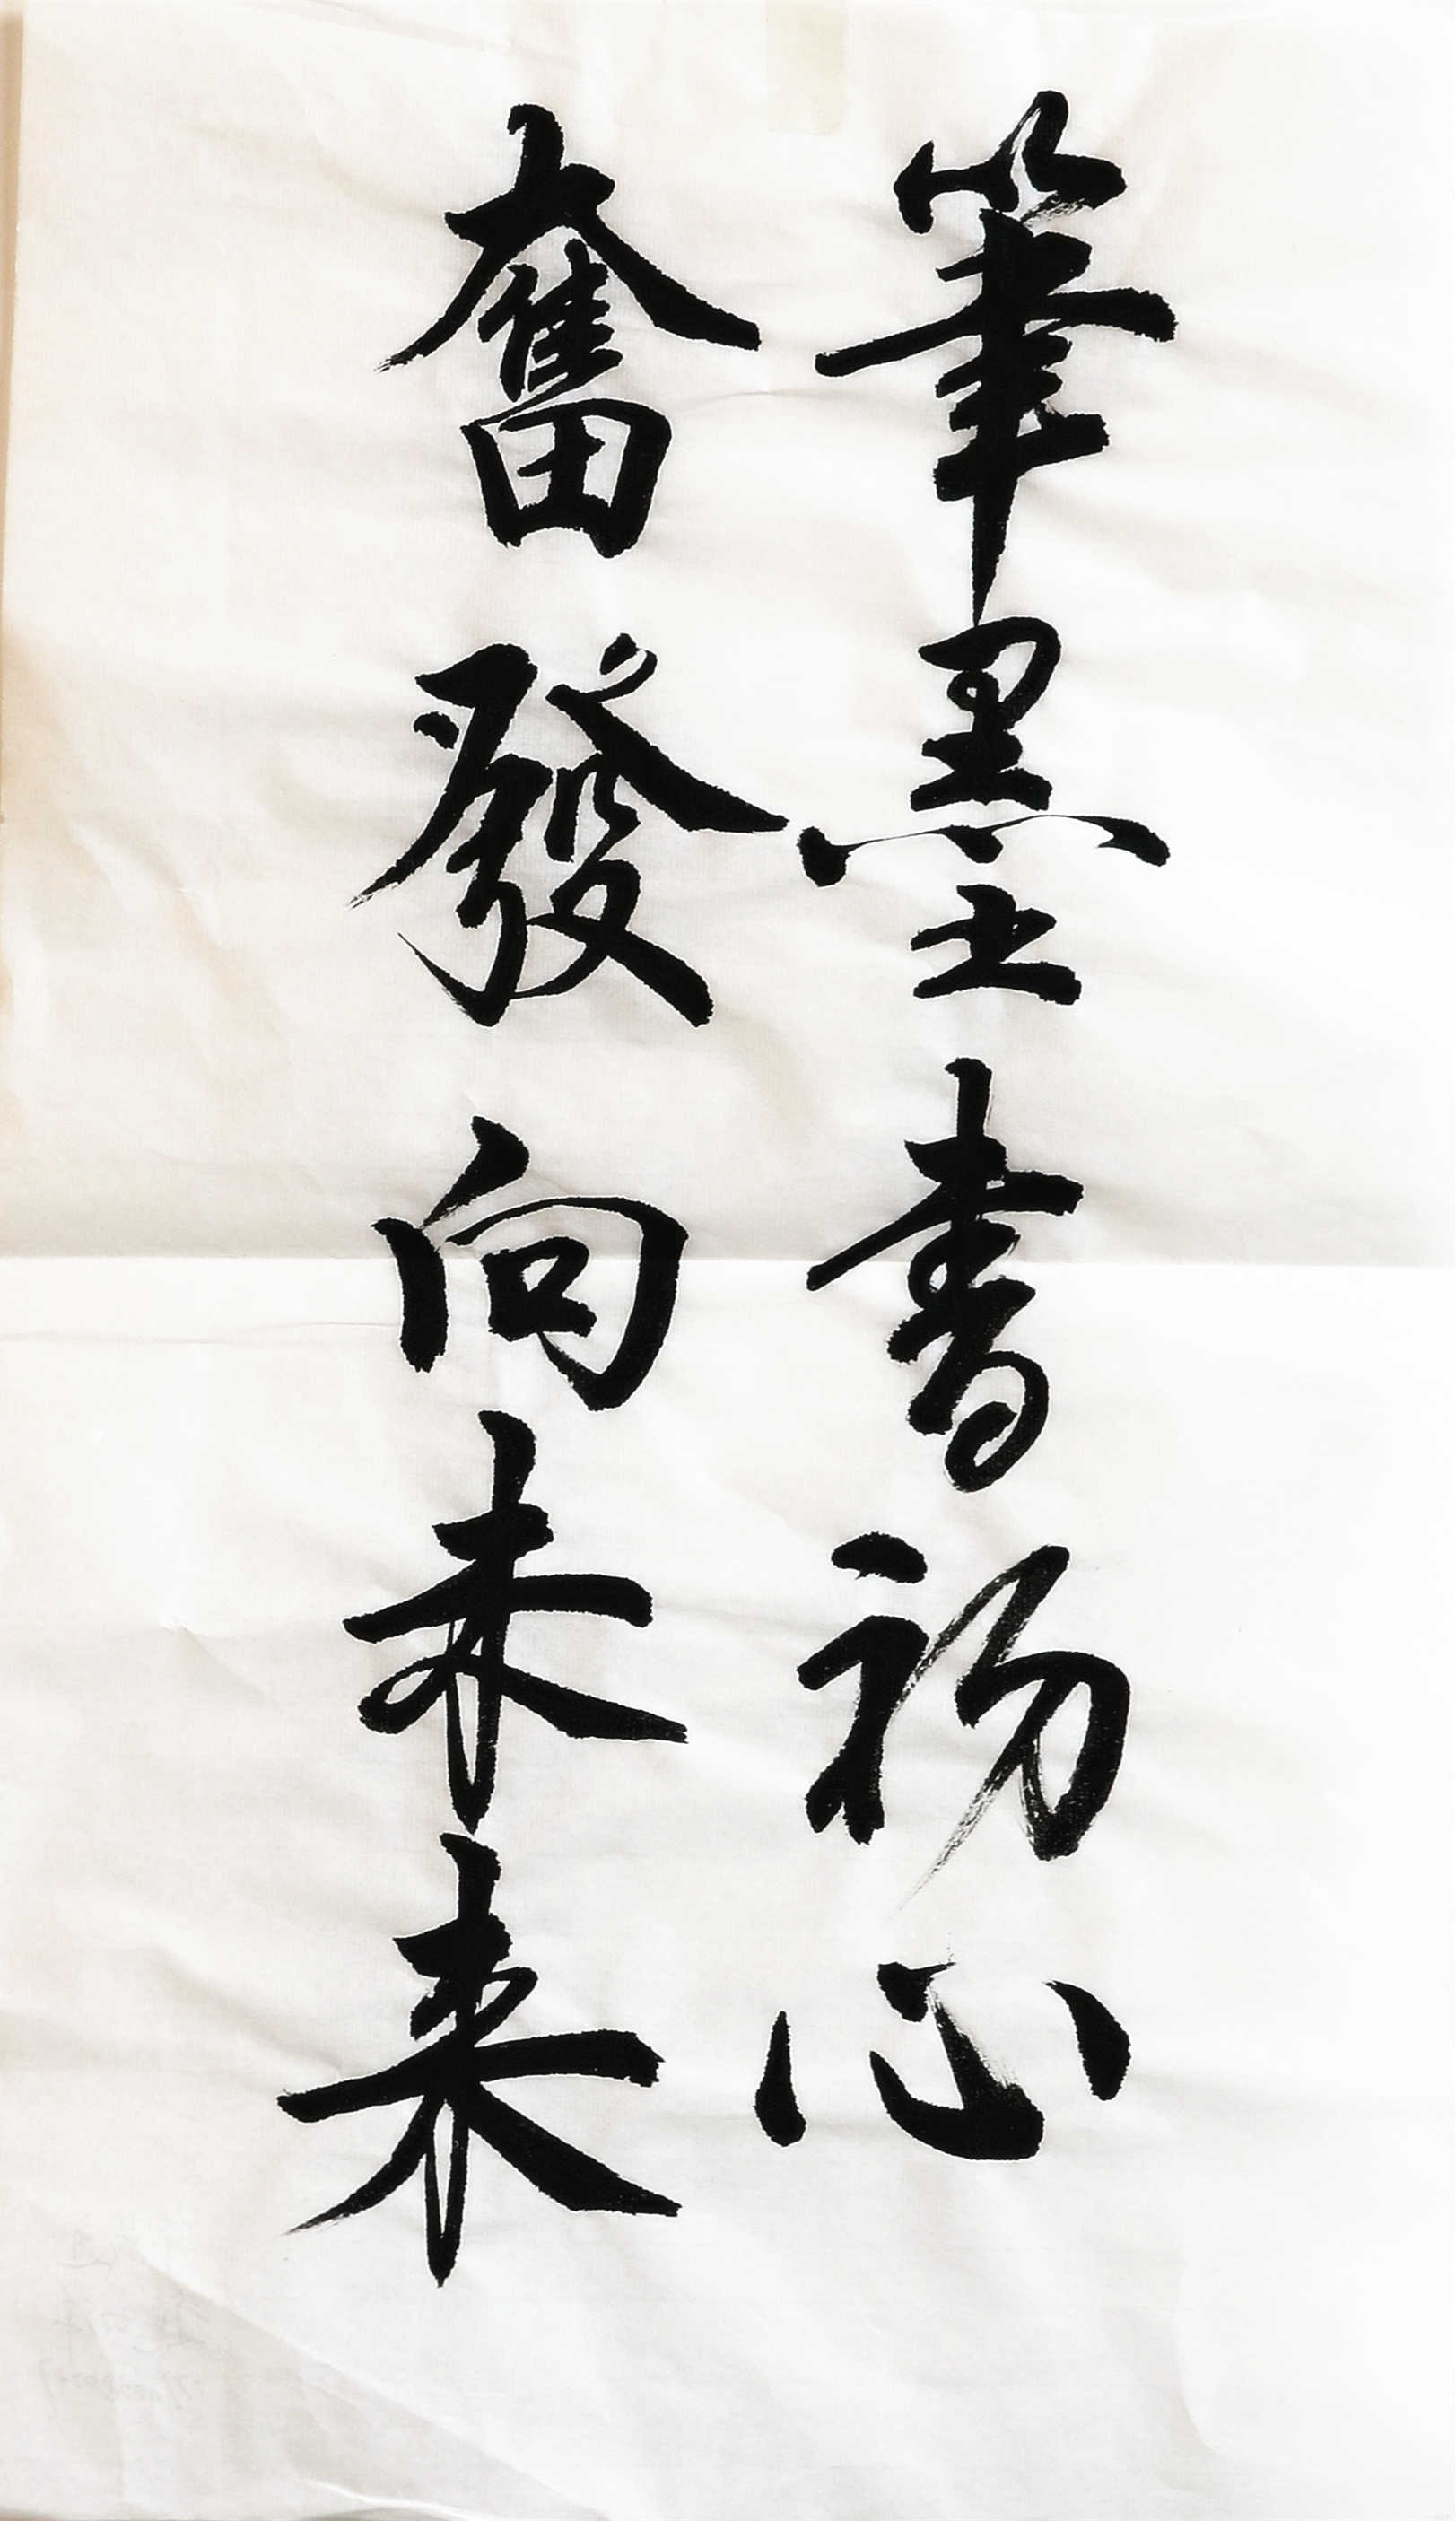 筆墨書初心
奮發向未来